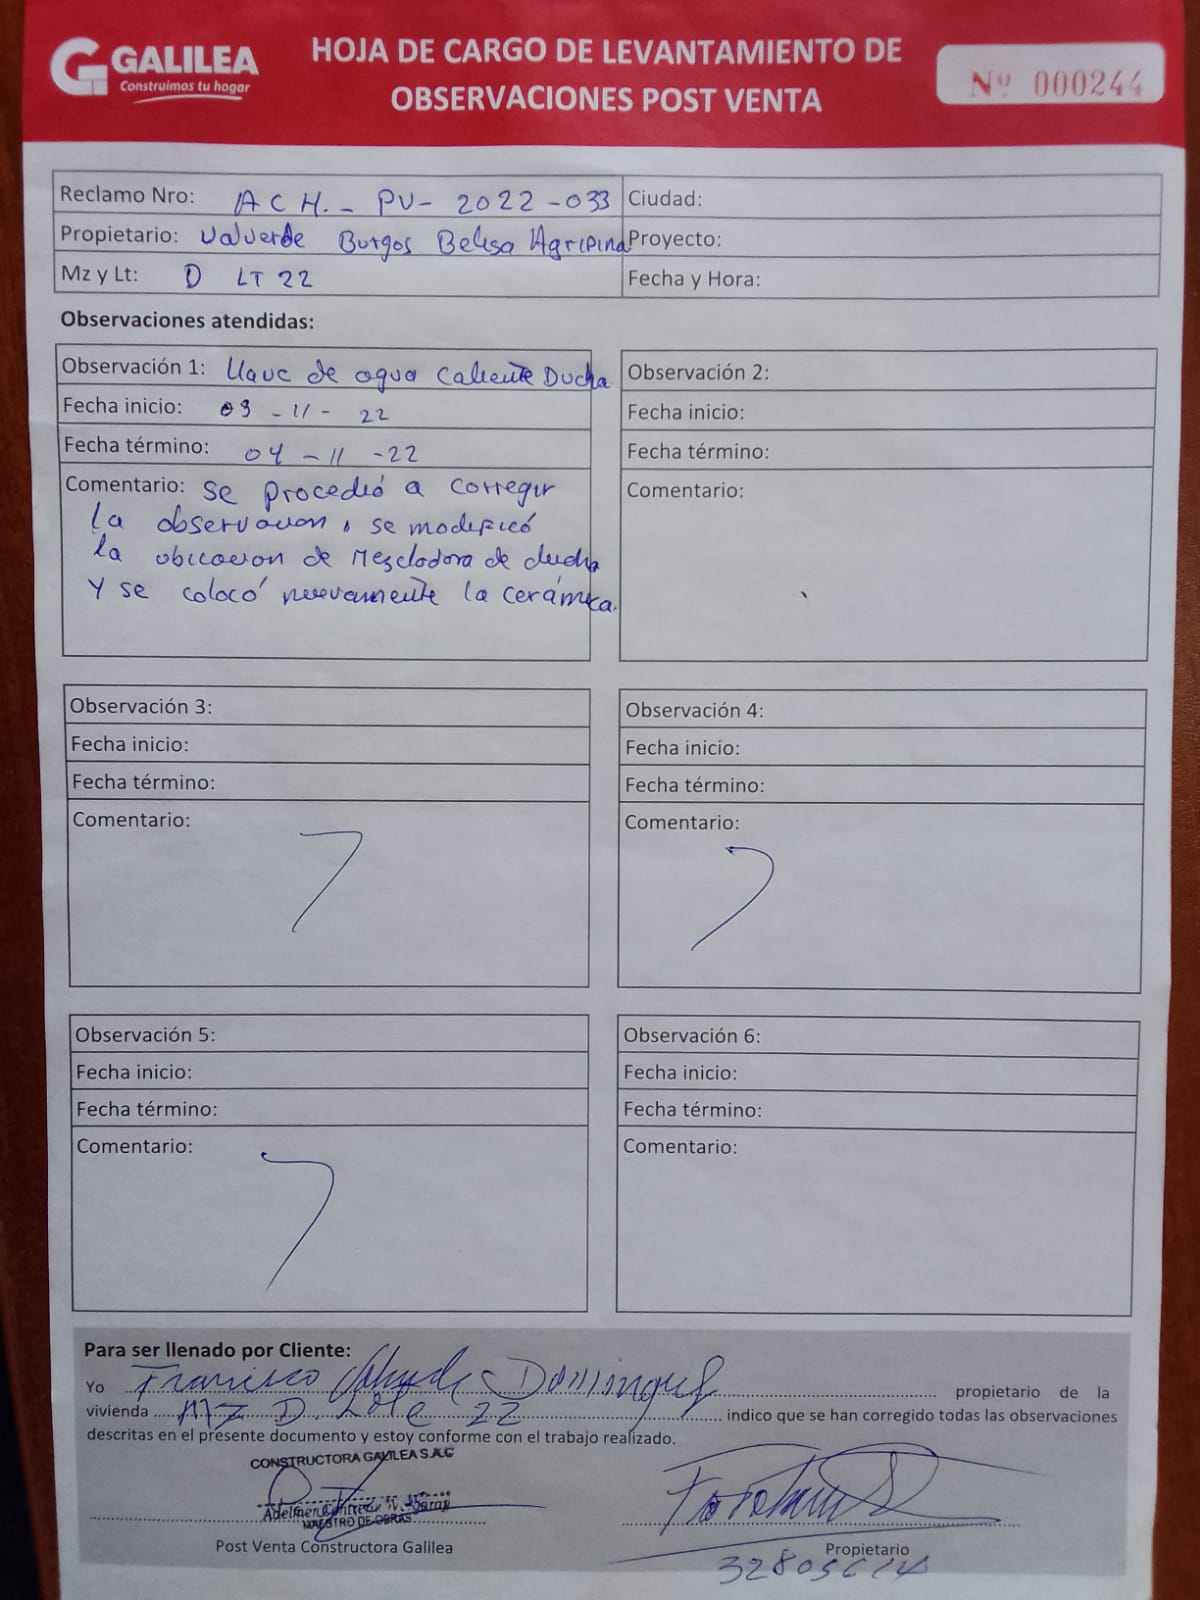 GALILEA
Construimos tu hogar
HOJA DE CARGO DE LEVANTAMIENTO DE
OBSERVACIONES POST VENTA
Nº 000244
Reclamo Nro: ACH.- PV- 2022-033
Ciudad:
Propietario: Valverde Burgos Belisa Agripina
Proyecto:
Mz y Lt: D LT 22
Fecha y Hora:
Observaciones atendidas:
Observación 1: Llave de agua Caliente Ducha
Fecha inicio: 03-11-22
Fecha término: 04-11-22
Comentario: se procedió a corregir
la observacion, se modificó
la ubicacion de Mezcladora de ducha
Y se colocó nuevamente la cerámica.
Observación 2:
Fecha inicio:
Fecha término:
Comentario:
Observación 3:
Fecha inicio:
Fecha término:
Comentario:
Observación 4:
Fecha inicio:
Fecha término:
Comentario:
Observación 5:
Fecha inicio:
Fecha término:
Comentario:
Observación 6:
Fecha inicio:
Fecha término:
Comentario:
Para ser llenado por Cliente:
Yo Francisco Dominguez propietario de la
vivienda MZ D. Lote 22 indico que se han corregido todas las observaciones
descritas en el presente documento y estoy conforme con el trabajo realizado.
CONSTRUCTORA GALILEA S.A.C
MAESTRO DE OBRAS
Post Venta Constructora Galilea
Propietario